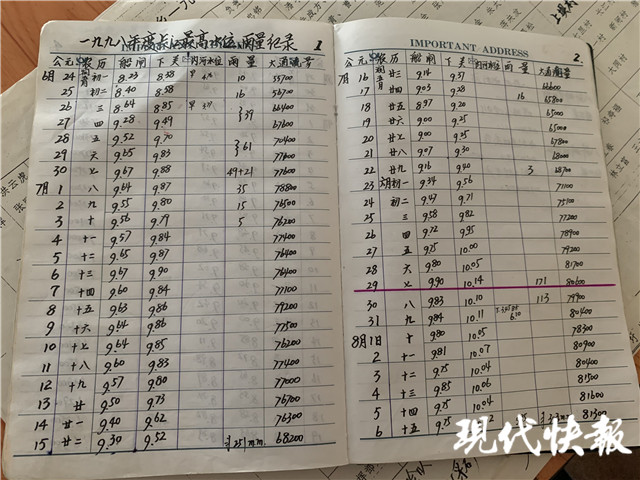 一九九八年度长江最高水位、雨量纪录 1
公元 农历 船闸 下关 内河水位 雨量 大通流量
6月 24 初一 8.23 8.38 10 55700
25 初二 8.40 8.58 16 56700
26 三 8.64 8.85 66400
27 四 9.28 9.49 39 67600
28 五 9.52 9.70 70400
29 六 9.65 9.83 61 77600
30 七 9.67 9.88 49+21 77600
7月 1 八 9.64 9.87 35 78800
2 九 9.55 9.80 15 76500
3 十 9.56 9.79 5 76200
4 十一 9.57 9.84 77400
5 十二 9.65 9.87 76400
6 十三 9.67 9.90 76400
7 十四 9.60 9.84 77100
8 十五 9.63 9.86 79200
9 十六 9.64 9.86 77500
10 十七 9.64 9.85 76200
11 十八 9.60 9.83 77400
12 十九 9.57 9.80 77000
13 廿 9.50 9.73 76700
14 廿一 9.40 9.62 76300
15 廿二 9.30 9.52 251mm 68200
IMPORTANT ADDRESS 2
公元 农历 船闸 下关 内河水位 雨量 大通流量
7月 16 廿三 9.14 9.37
17 廿四 9.03 9.28 16 66600
18 廿五 8.97 9.20 65800
19 廿六 9.00 9.25 65000
20 廿七 9.00 9.35 65000
21 廿八 9.07 9.30 67800
22 廿九 9.16 9.40 3 68700
23 初一 9.34 9.56 71100
24 初二 9.47 9.71 75100
25 三 9.58 9.82 77200
26 四 9.72 9.95 78900
27 五 9.75 10.00 79200
28 六 9.80 10.05 81700
29 七 9.90 10.14 171 80600
30 八 9.83 10.10 113 79900
31 九 9.84 10.11 6.10 80400
8月1日 十 9.80 10.05 78300
2 十一 9.81 10.07 80900
3 十二 9.75 10.04 80400
4 十三 9.85 10.06 81500
5 十四 9.75 10.04 81600
6 十五 9.75 81300
现代快報